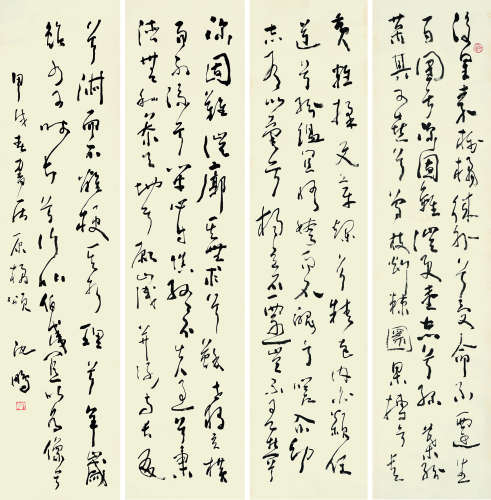 后皇嘉樹橘徠服兮受命不遷生
南國兮深固難徙更壹志兮綠葉素
榮紛其可喜兮曾枝剡棘圓果摶兮青
黄雜糅文章爛兮精色内白類任
道兮紛緼宜脩姱而不醜兮嗟爾幼
志有以異兮獨立不遷豈不可喜兮
深固難徙廓其無求兮蘇世獨立横
而不流兮閉心自慎終不失過兮秉
德無私參天地兮願歲并謝與長友
兮淑離而不淫梗其有理兮年歲
雖少可師長兮行比伯夷置以為像兮
甲戌春書屈原橘頌 沈鵬